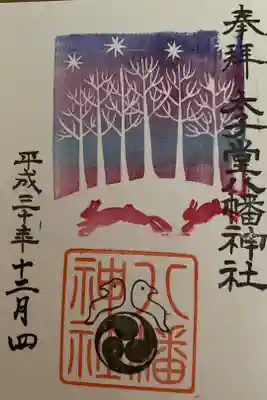 奉拝
太子堂八幡神社
八幡
神社
平成三十年十二月四